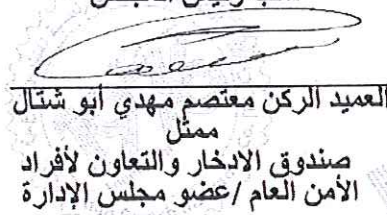 نائب رئيس المجلس
العميد الركن معتصم مهدي ابو شتال
ممثل
صندوق الادخار والتعاون لأفراد
الأمن العام /عضو مجلس الإدارة